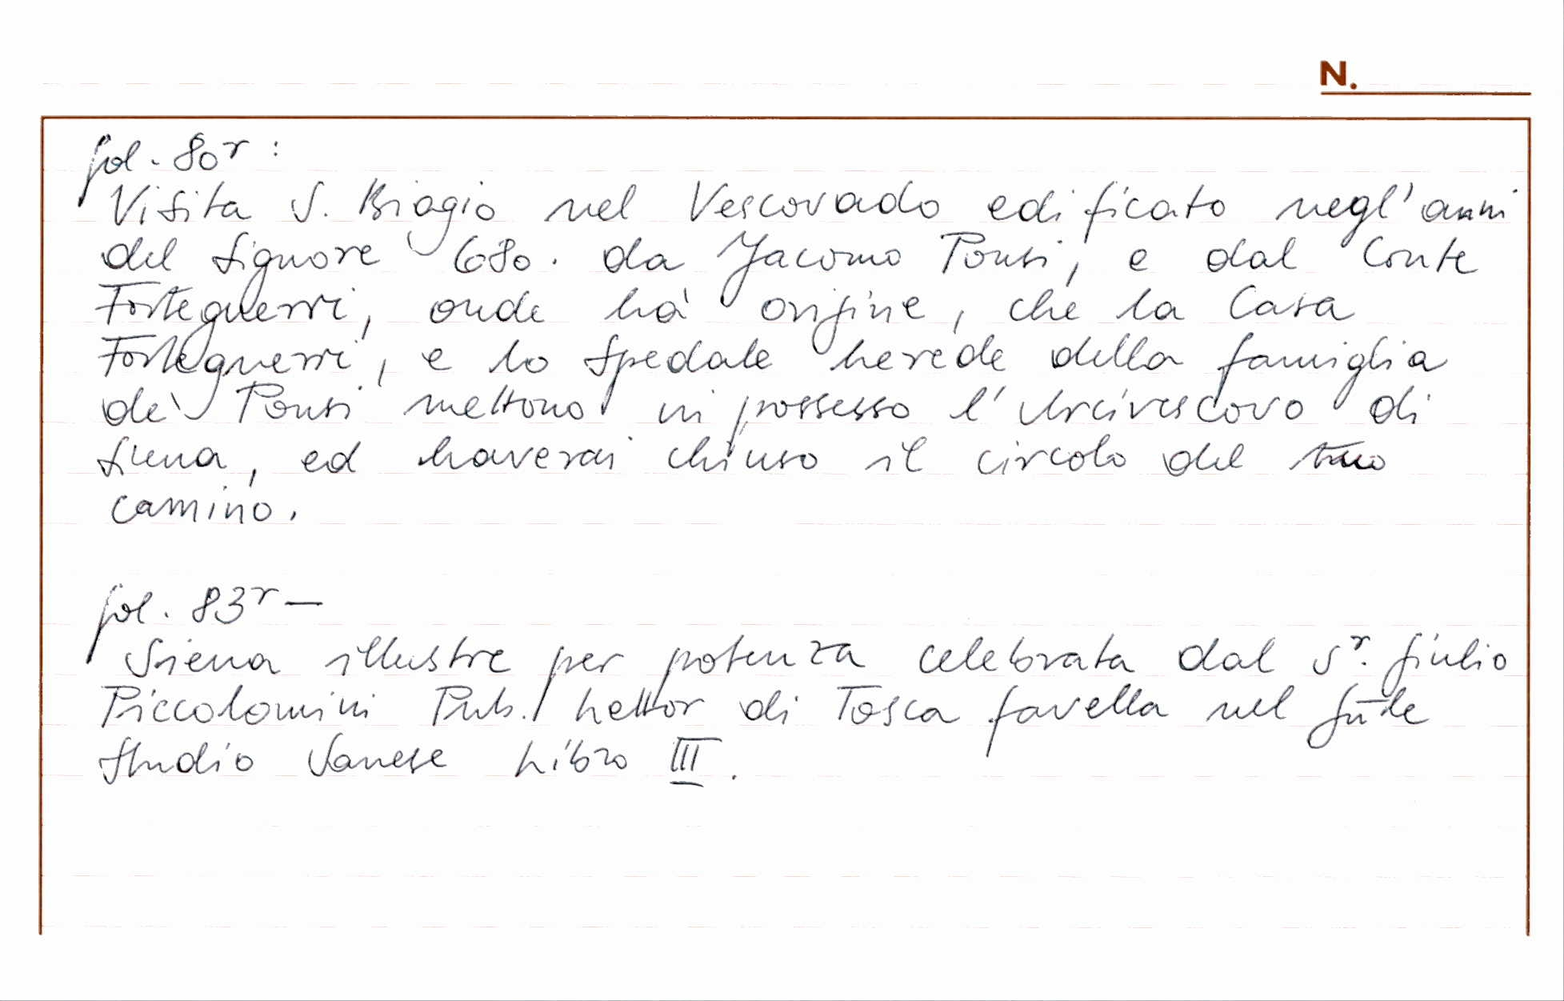 N.
fol. 80r:
Visita S. Biagio nel Vescovado edificato negl' anni
del Signore 680. da Jacomo Ponsi, e dal Conte
Forteguerri, onde hà origine, che la Casa
Forteguerri, e lo Spedale herede della famiglia
de' Ponsi mettono in possesso l'Arcivescovo di
Siena, ed haverai chiuso il circolo del tuo
camino.
fol. 83r —
Siena illustre per potenza celebrata dal Sr. Giulio
Piccolomini Pub. Lettor di Tosca favella nel
Studio Sanese Libro III.